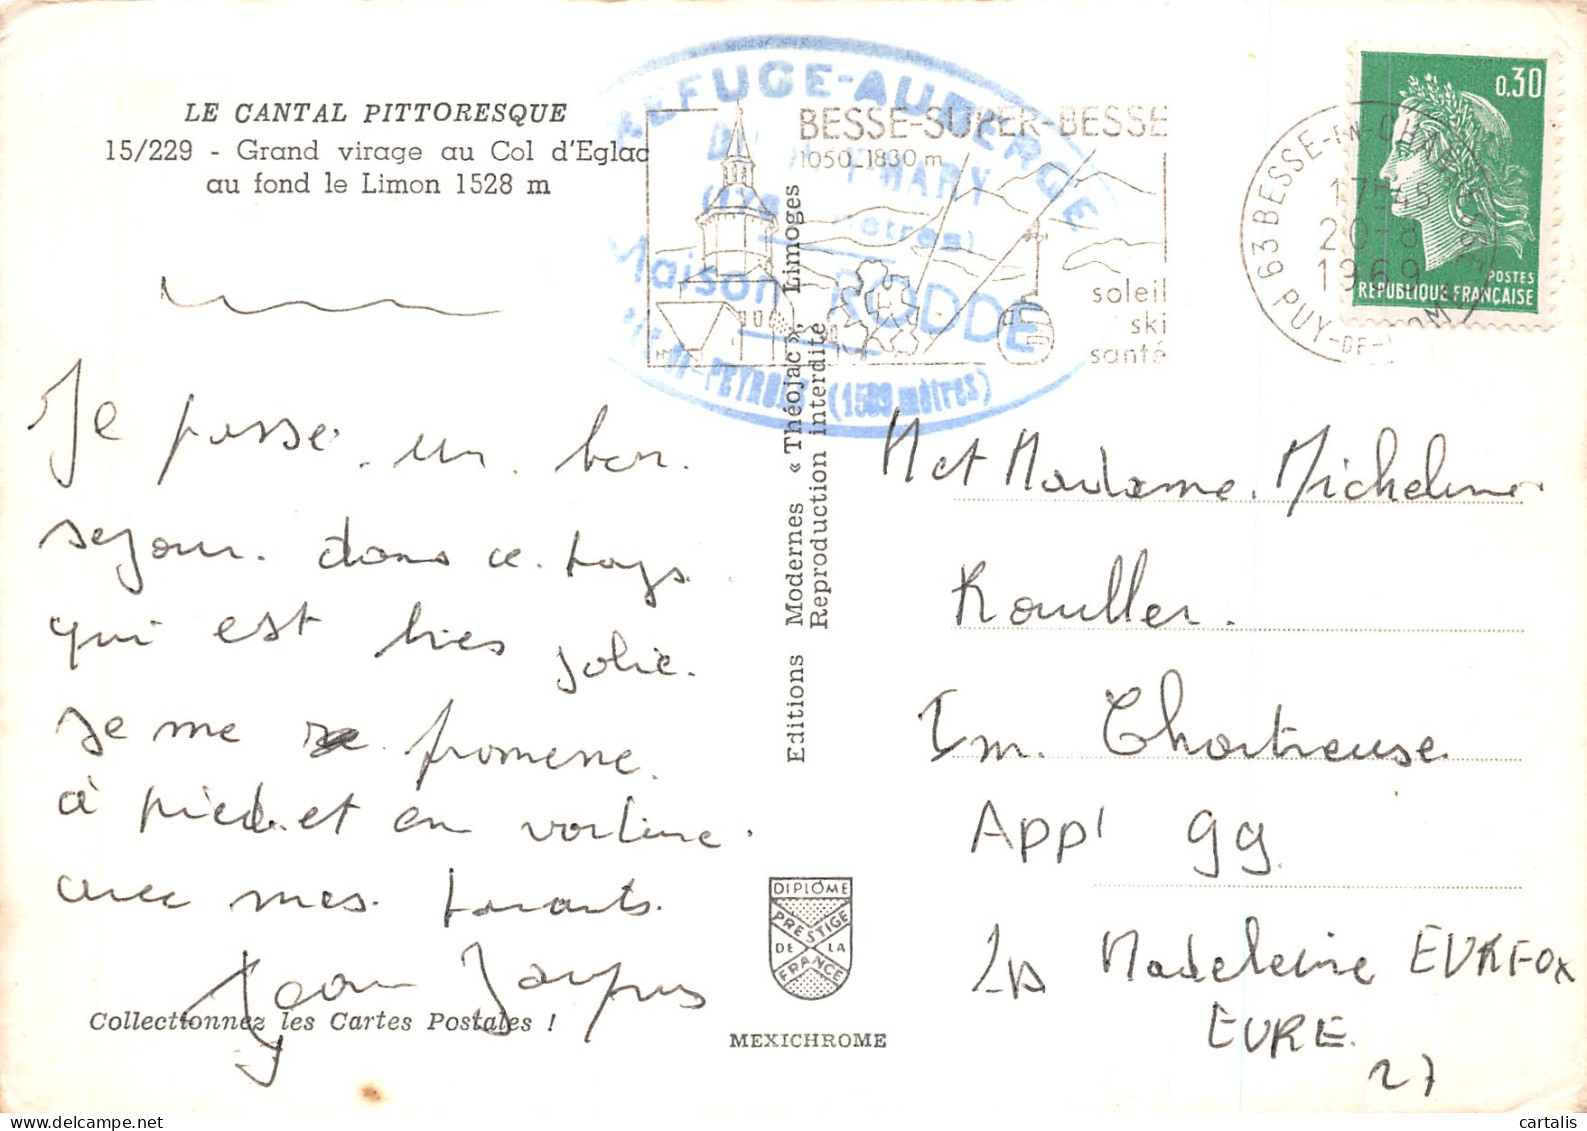 LE CANTAL PITTORESQUE
15/229 - Grand virage au Col d'Eglac
au fond le Limon 1528 m
REFUGE-AUBERGE
MARY
Maison RODDE
PEYROL (1589 mètres)
BESSE-SUPER-BESSE
1050_1830 m
soleil
ski
santé
63 BESSE-EN-CHANDESSE
17H45
20-8
1969
PUY-DE-DOME
0,30
POSTES
REPUBLIQUE FRANÇAISE
Je passe un bon
sejour dans ce pays
qui est très jolie.
Je me promene
à pied et en voiture
avec mes parents.
Jean Jacques
Collectionnez les Cartes Postales !
Editions Modernes « Théojac », Limoges
Reproduction interdite
DIPLÔME
PRESTIGE
DE LA
FRANCE
MEXICHROME
M et Madame Micheline
Roullier.
Im. Chartreuse
App' 99
La Madeleine EVREUX
EURE.
27
cartalis